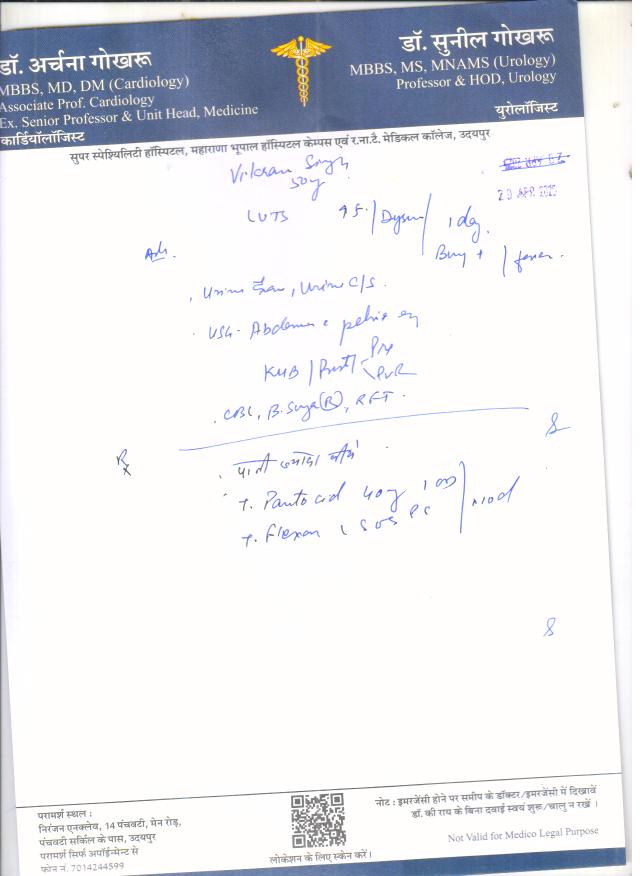 डॉ. अर्चना गोखरू
MBBS, MD, DM (Cardiology)
Associate Prof. Cardiology
Ex. Senior Professor & Unit Head, Medicine
कार्डियॉलॉजिस्ट
डॉ. सुनील गोखरू
MBBS, MS, MNAMS (Urology)
Professor & HOD, Urology
युरोलॉजिस्ट
सुपर स्पेश्यिलिटी हॉस्पिटल, महाराणा भूपाल हॉस्पिटल केम्पस एवं र.ना.टै. मेडिकल कॉलेज, उदयपुर
Singh
APR
LUTS
1 day
Adv.
Urine , Urine C/S
USG- Abdomen
KUB / Prost
PVR
CBC, B. Sugar (R), RFT
Rx
पानी ज्यादा पीये
T. Pantocid 40mg 1 OD
T. 1 SOS
x 10d
परामर्श स्थल :
निरंजन एनक्लेव, 14 पंचवटी, मेन रोड़,
पंचवटी सर्किल के पास, उदयपुर
परामर्श सिर्फ अपॉईन्मेन्ट से
फोन नं. 7014244599
लोकेशन के लिए स्केन करें।
नोट : इमरजेंसी होने पर समीप के डॉक्टर/इमरजेंसी में दिखावें
डॉ. की राय के बिना दवाई स्वयं शुरू/चालु न रखें ।
Not Valid for Medico Legal Purpose